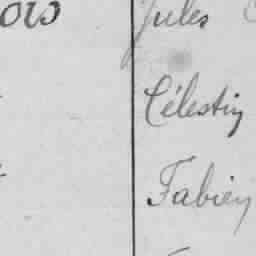 Jules
Célestin
Fabien